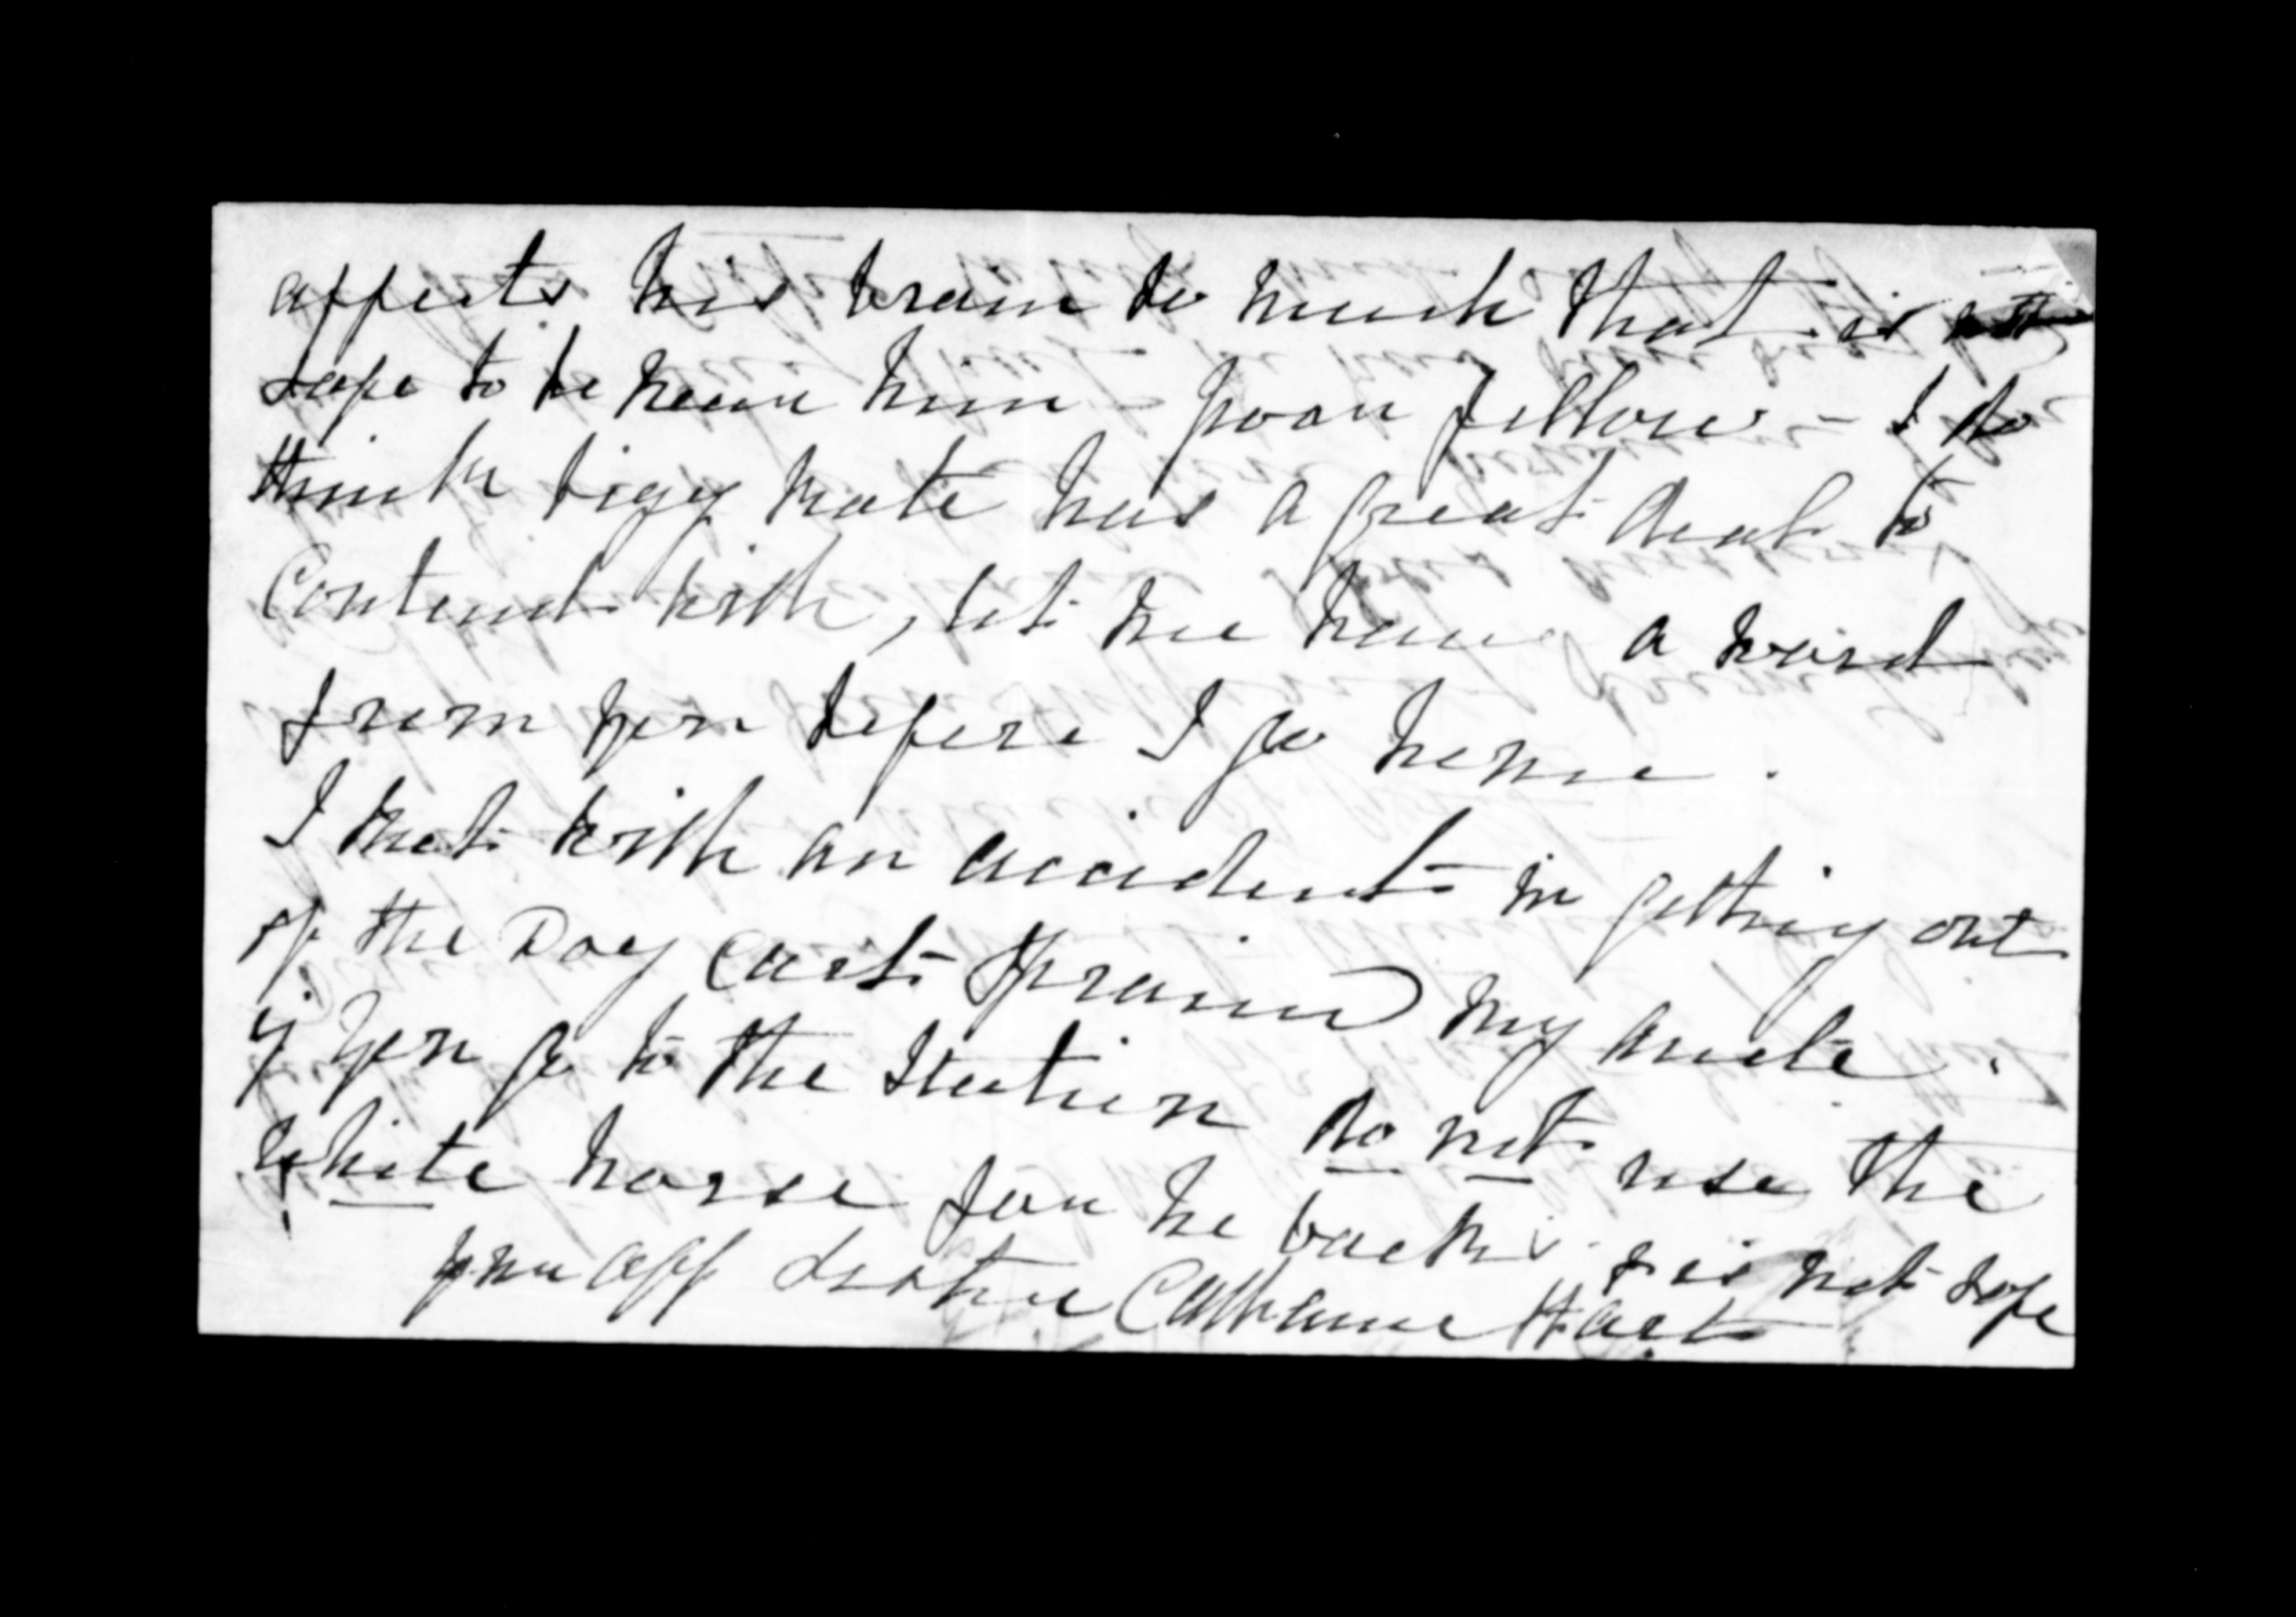 affects his brain so much that is not
safe to be near him - poor fellow - I do
think Ligy Mate has a great deal to
contend with, let me have a word
from you before I go home.
I met with an accident in getting out
of the Dog Cart sprained my ancle.
if you go to the Station do not use the
white horse for he backs & is not safe
your aff sister Catharine Hart